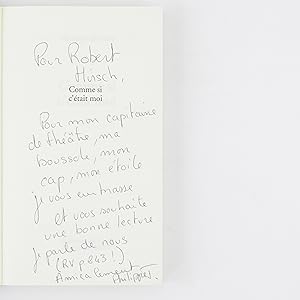 Pour Robert
Hirsch,
Comme si
c'était moi
Pour mon capitaine
de théâtre, ma
boussole, mon
cap, mon étoile
je vous embrasse
et vous souhaite
une bonne lecture
je parle de nous
(RV p 243 !).
Amicalement
Philippe.